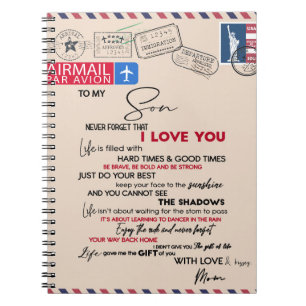 APPROVED
123456789
IMMIGRATION
DEPARTURE
AIRMAIL
PAR AVION
TO MY
Son
NEVER FORGET THAT
I LOVE YOU
Life is filled with
HARD TIMES & GOOD TIMES
BE BRAVE, BE BOLD AND BE STRONG
JUST DO YOUR BEST
keep your face to the sunshine
AND YOU CANNOT SEE
THE SHADOWS
Life isn't about waiting for the storm to pass
IT'S ABOUT LEARNING TO DANCER IN THE RAIN
Enjoy the ride and never forget
YOUR WAY BACK HOME
I DIDN'T GIVE YOU The gift of life
Life gave me the GIFT of you
WITH LOVE & kisses,
Mom